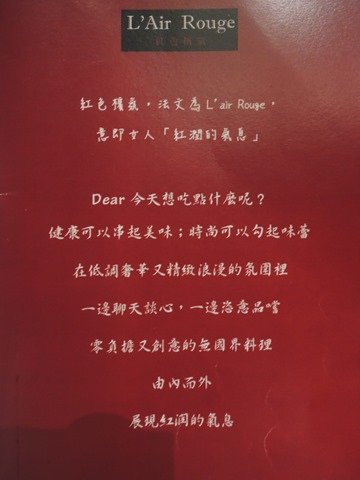 L'Air Rouge
紅色獷氣
紅色獷氣，法文為 L'air Rouge，
意即女人「紅潤的氣息」
Dear 今天想吃點什麼呢？
健康可以串起美味；時尚可以勾起味蕾
在低調奢華又精緻浪漫的氛圍裡
一邊聊天談心，一邊恣意品嚐
零負擔又創意的無國界料理
由內而外
展現紅润的氣息